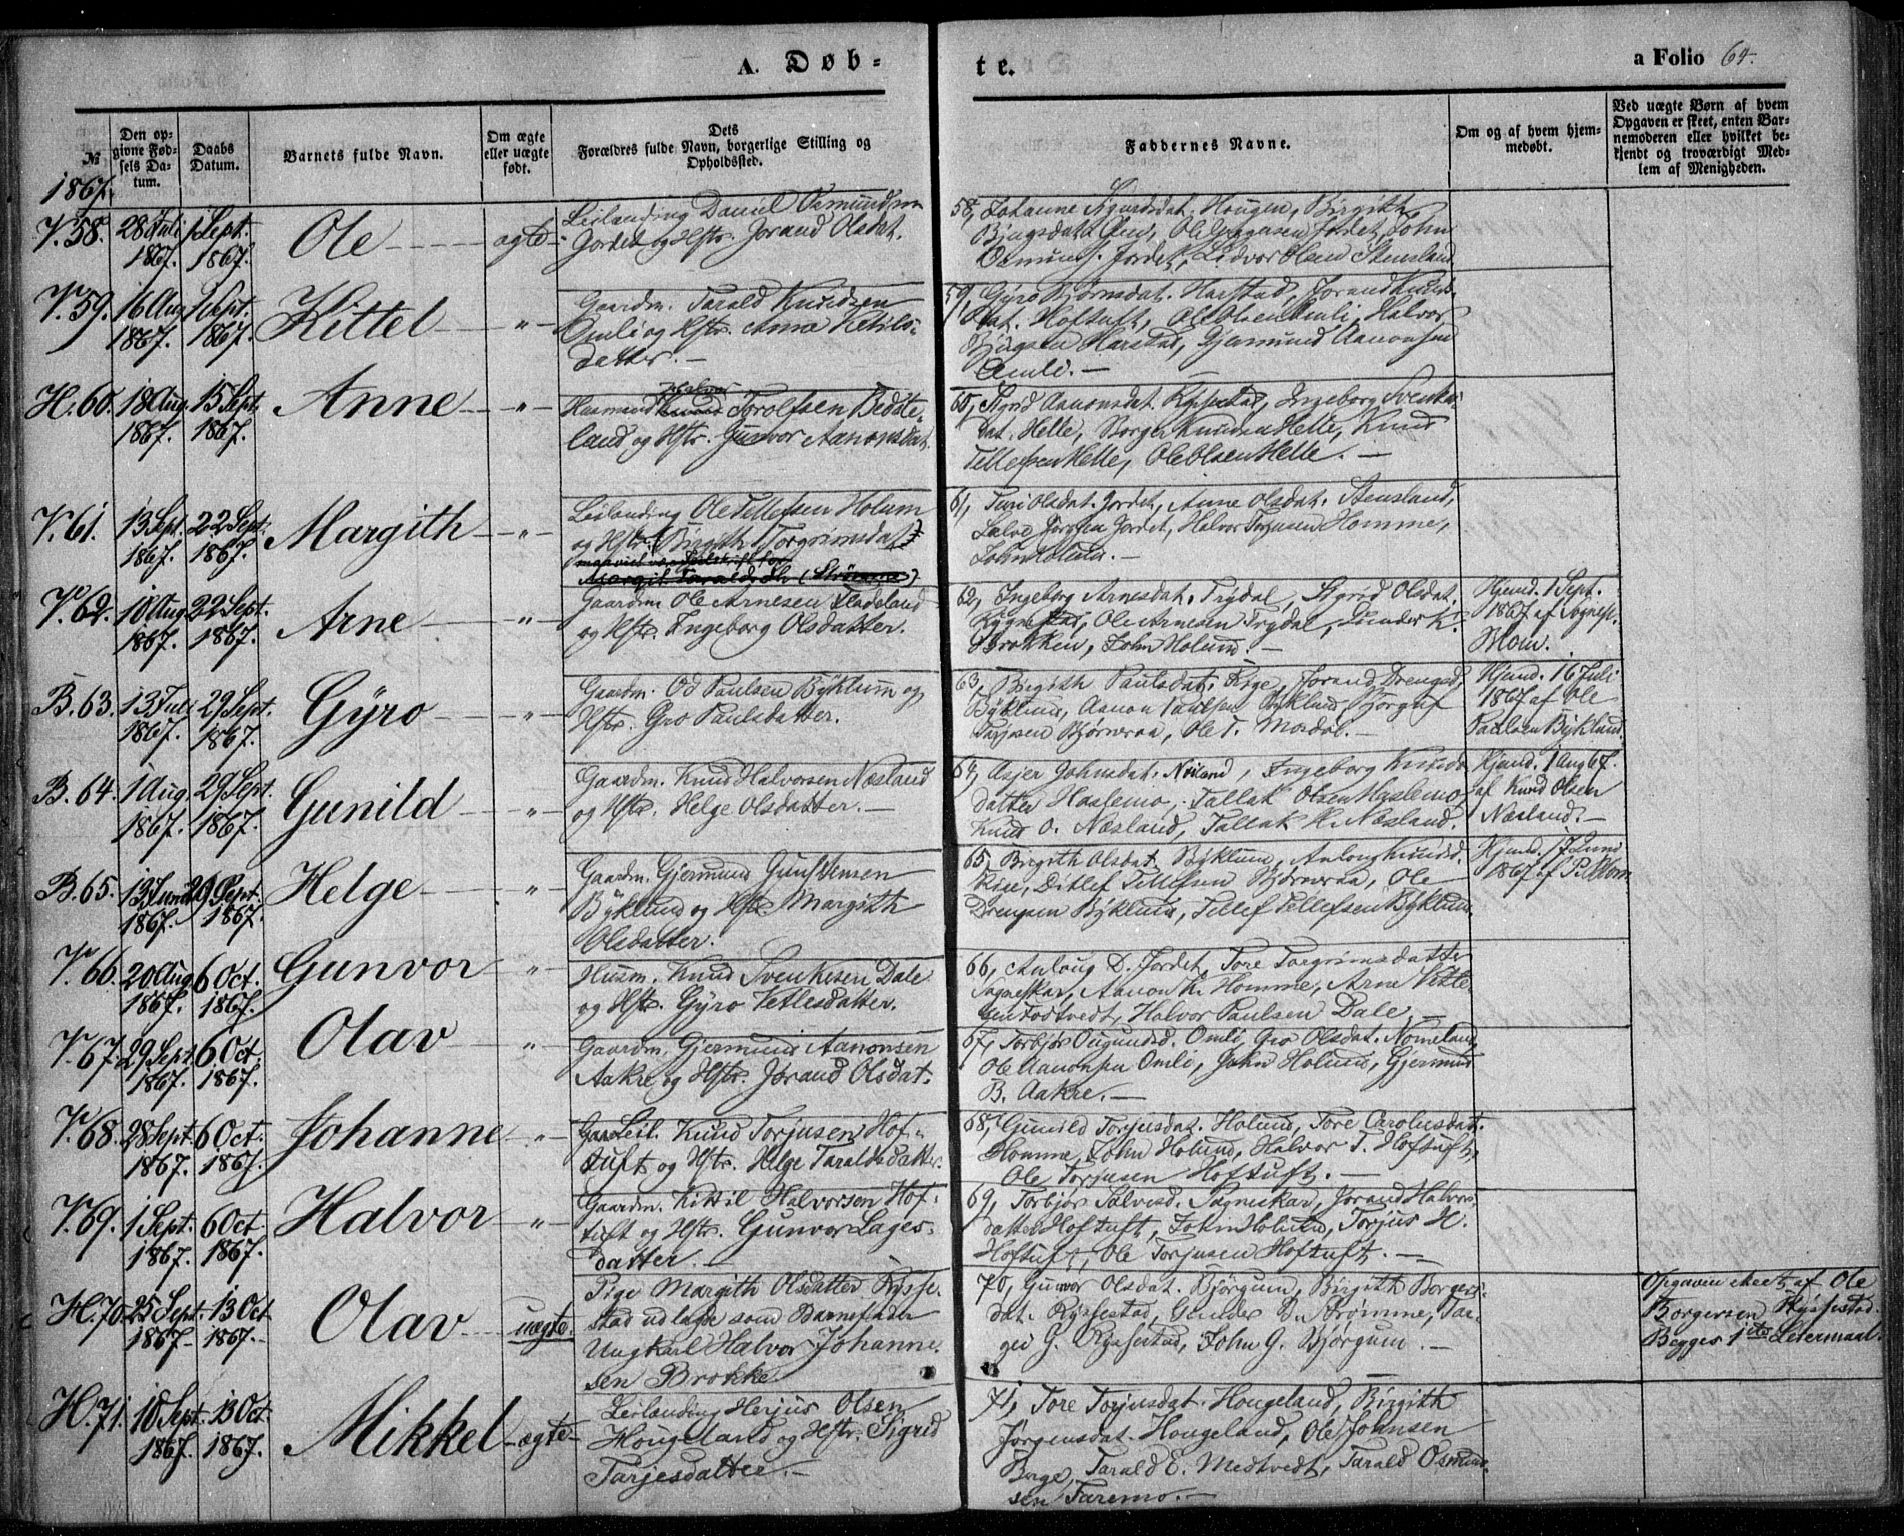 A. Døb-
te.
a Folio 64.
№
Den op-
givne Fød-
sels Da-
tum.
Daabs
Datum.
Barnets fulde Navn.
Om ægte
eller uægte
født.
Dets
Forældres fulde Navn, borgerlige Stilling og
Opholdssted.
Faddernes Navne.
Om og af hvem hjem-
medøbt.
Ved uægte Børn af hvem
Opgaven er skeet, enten Bar-
nemoderen eller hvilket be-
kjendt og troværdigt Med-
lem af Menigheden.
1867.
V. 58.
28 Juli
1867.
1 Sept.
1867.
Ole
ægte
Leilænding Daniel Osmundsen
Jordet og Hstr. Jorand Olsdat.
58, Johanne Sjurdsdat. Hougen, Birgith
Ole Jordet, John
Jordet, Lidvor Stensland
V. 59.
16 Aug
1867.
1 Sept.
1867.
Kittel
"
Gaardm. Tarald Knudsen
Omli og Hstr. Anne Ketils-
datter.
59, Gyro Bjørnsdat. Harstad, Jorand Knuds-
dat. Hoftuft, Ole Olsen Omli, Halvor
Harstad, Gjermund Aanonsen
Omli.
H. 60.
18 Aug
1867.
15 Sept.
1867.
Anne
"
Halvor
Husmand Knud Torolfsen Bedste-
land og Hstr. Gunvor Aanonsdat.
60, Sigrid Aanonsdat. Rysestad, Ingeborg Svenke-
dat. Helle, Borger Knudsen Helle, Knud
Tellefsen Helle, Ole Olsen Helle.
V. 61.
13 Sept.
1867.
22 Sept.
1867.
Margith
"
Leilænding Ole Tellefsen Holum
og Hstr. Birgith Torgrimsdat.
Margit Taraldsdtr (Strømme)
61, Turi Olsdat. Jordet, Anne Olsdat. Stensland,
Salve Jordet, Halvor Torjusen Homme,
John Holum.
V. 62.
10 Aug
1867.
22 Sept.
1867.
Arne
"
Gaardm. Ole Arnesen Fladeland
og Hstr. Ingeborg Olsdatter.
62, Ingeborg Arnesdat. Trydal, Sigrid Olsdat.
Rygnestad, Ole Arnesen Trydal, Gunder K.
Brokken, John Holum.
Hjemd. 1 Sept.
1867 af Sognepr.
Moin.
B. 63.
13 Juli
1867.
29 Sept.
1867.
Gyro
"
Gaardm. Od Paulsen Byklum og
Hstr. Gro Paulsdatter.
63, Birgith Paulsdat. Rige, Jorand Drengsd.
Byklum, Aanon Paulsen Byklund, Bjørguf
Torjusen Bjørneraa, Ole T. Mosdøl.
Hjemd. 16 Juli
1867 af Ole
Paulsen Byklund.
B. 64.
1 Aug.
1867.
29 Sept.
1867.
Gunild
"
Gaardm. Knud Halvorsen Næsland
og Hstr. Helge Olsdatter.
64, Asjer Johnsdat. Næsland, Ingeborg Knuds-
datter Haslemo, Tallak Olsen Haslemo,
Knud O. Næsland, Tallak K. Næsland.
Hjemd. 1 Aug 67.
af Knud Olsen
Næsland.
B. 65.
13 Juni
1867.
29 Sept.
1867.
Helge
"
Gaardm. Gjermund Gunstensen
Byklund og Hstr. Margith
Olsdatter.
65, Birgith Olsdat. Byklum, Anlaug Knudsd.
Rige, Ditlef Tellefsen Bjørneraa, Ole
Drengsen Byklund, Tellef Tellefsen Byklum.
Hjemd. 17 Juni
1867 af P. Blom.
V. 66.
20 Aug
1867.
6 Oct.
1867.
Gunvor
"
Husm. Knud Svenkesen Dale
og Hstr. Gyro Vetlesdatter.
66, Anlaug D. Jordet, Tore Torgrimsdatter
Sagneskar, Aanon K. Homme, Arne Vetle-
sen Tostvedt, Halvor Paulsen Dale.
V. 67.
29 Sept.
1867.
6 Oct.
1867.
Olav
"
Gaardm. Gjermund Aanonsen
Aakre og Hstr. Jorand Olsdat.
67, Torbjør Ougundsd. Omli, Gro Olsdat. Nomeland,
Ole Aanonsen Omli, John Holum, Gjermund
B. Aakre.
V. 68.
28 Sept.
1867.
6 Oct.
1867.
Johanne
"
Leil. Knud Torjusen Hof-
tuft og Hstr. Helge Taraldsdatter.
68, Gunild Torjusdat. Holum, Tore Carolusdat.
Homme, John Holum, Halvor T. Hoftuft,
Ole Torjusen Hoftuft.
V. 69.
1 Sept.
1867.
6 Oct
1867.
Halvor
"
Gaardm. Kittil Halvorsen Hof-
tuft og Hstr. Gunvor Lages-
datter.
69, Torbjør Salvesd. Sagneskar, Jorand Halvors-
datter Hoftuft, John Holum, Torjus H.
Hoftuft, Ole Torjusen Hoftuft.
H. 70.
25 Sept.
1867.
13 Oct
1867.
Olav
uægte.
Pige Margith Olsdatter Rysse-
stad udlagde som Barnefader
Ungkarl Halvor Johanne-
sen Brokke.
70, Gunvor Olsdat. Bjørgum, Birgith Borgers-
dat. Ryssestad, Gunder D. Strømme, Tar-
gei G. Ryssestad, John G. Bjørgum.
Opgaven skeet af Ole
Borgersen Ryssestad.
Begges 1ste Leiermaal.
H. 71.
10 Sept.
1867.
13 Oct.
1867.
Mikkel
ægte
Leilænding Herjus Olsen
Hougeland og Hstr. Sigrid
Tarjesdatter.
71, Tore Torjusdat. Hougeland, Birgith
Jørgensdat. Hougeland, Ole Johnsen
Berge, Tarald E. Medtvedt, Tarald Osmund-
sen Faremo.